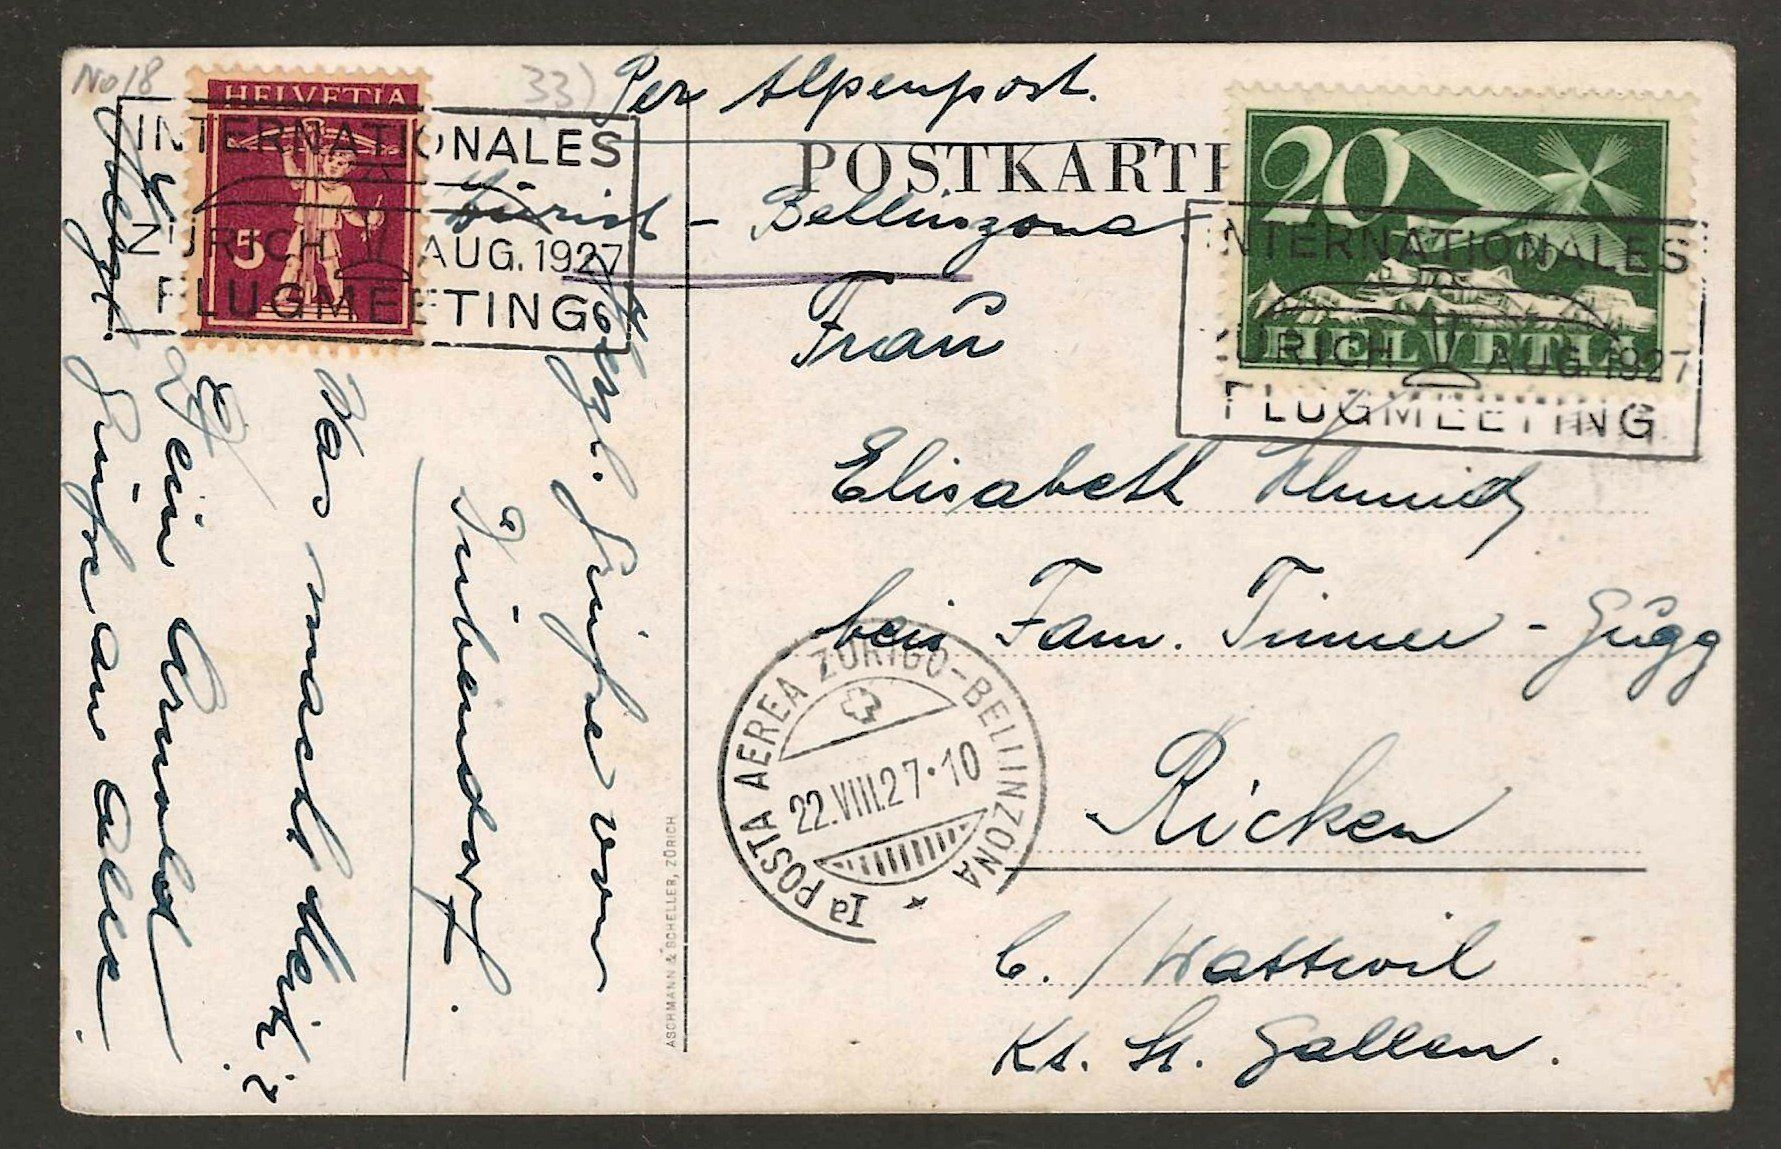 No 18
33)
Per Alpenpost.
POSTKARTE
Zürich – Bellinzona
HELVETIA
5
INTERNATIONALES
ZÜRICH AUG. 1927
FLUGMEETING
20
HELVETIA
INTERNATIONALES
ZÜRICH AUG. 1927
FLUGMEETING
Frau
Elisabeth Schmid
bei Fam. Timmer - Gugg
Ricken
b. / Wattwil
Kt. St. Gallen.
Iª POSTA AEREA ZURIGO-BELLINZONA
22.VIII.27·10
ASCHMANN & SCHELLER, ZÜRICH
Herzl. Grüsse von
Dübendorf.
Was macht Heiri?
Dein Arnold
Herzl. Grüsse an alle.